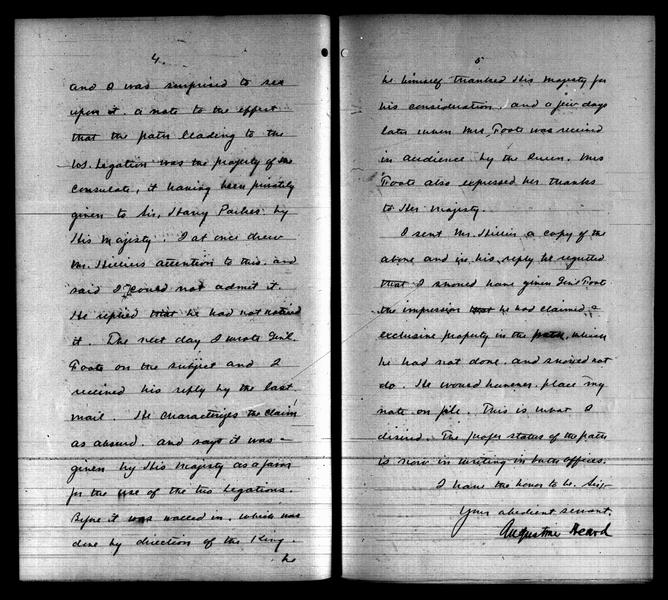 4.
and I was surprised to see
upon it. a note to the effect
that the path leading to the
U.S. Legation was the property of the
Consulate, it having been privately
given to Sir. Harry Parkes by
His Majesty. I at once drew
Mr. Hilliers attention to this. and
said I could not admit it.
He replied that he had not noticed
it. The next day I wrote Genl.
Foote on the subject and I
received his reply by the last
mail. He characterizes the claim
as absurd. and says it was
given by His Majesty as a favor
for the use of the two Legations.
Before it was walled in. which was
done by direction of the King.
he
5
he himself thanked His Majesty for
his consideration. and a few days
later when Mrs. Foote was received
in audience by the Queen. Mrs
Foote also expressed her thanks
to Her Majesty.
I sent Mr. Hillier a copy of the
above and in his reply he regretted
that I should have given Genl Foote
the impression that he had claimed a
exclusive property in the path, which
he had not done. and should not
do. He would however. place my
note on file. This is what I
desired. The proper status of the path
is now in writing in both offices.
I have the honor to be. Sir.
Your obedient servant,
Augustine Heard